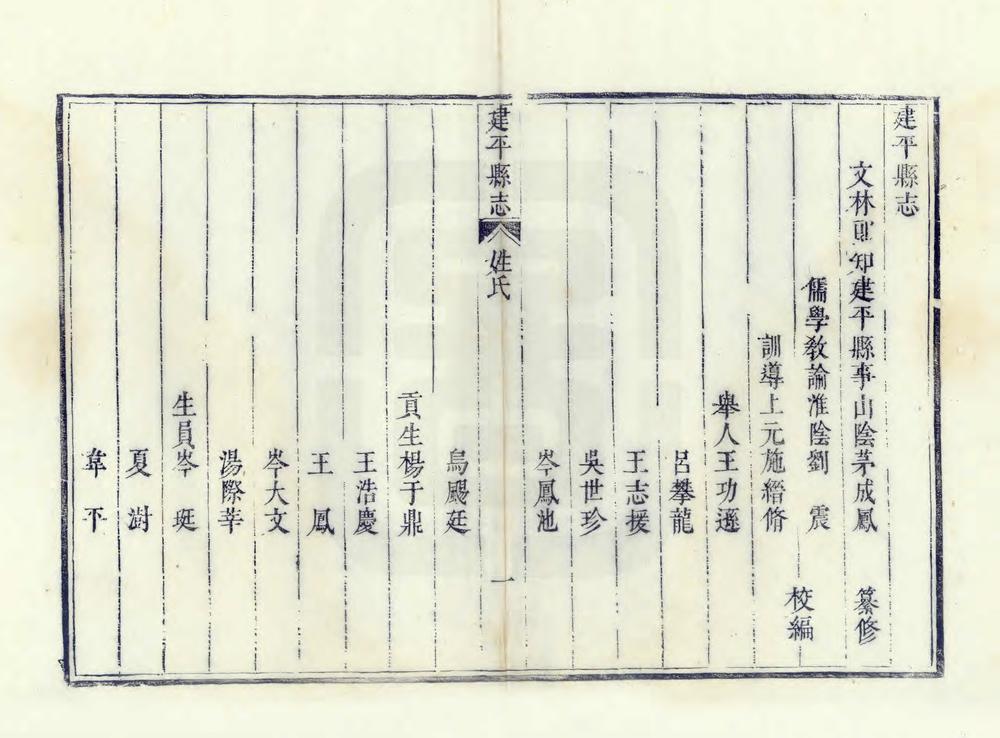 建平縣志
文林郎知建平縣事山陰茅成鳳 纂修
儒學敎諭淮陰劉 震
校編
訓導上元施縉脩
舉人王功遜
呂攀龍
王志援
吳世珍
岑鳳池
建平縣志 姓氏 一
烏颺廷
貢生楊于鼎
王浩慶
王 鳳
岑大文
湯際莘
生員岑 珽
夏 澍
韋 平